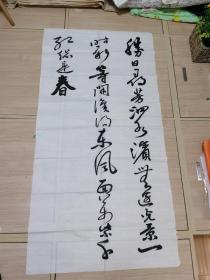 勝日尋芳泗水濱無边光景一
时新等閒識得东風面萬紫千
红總是春